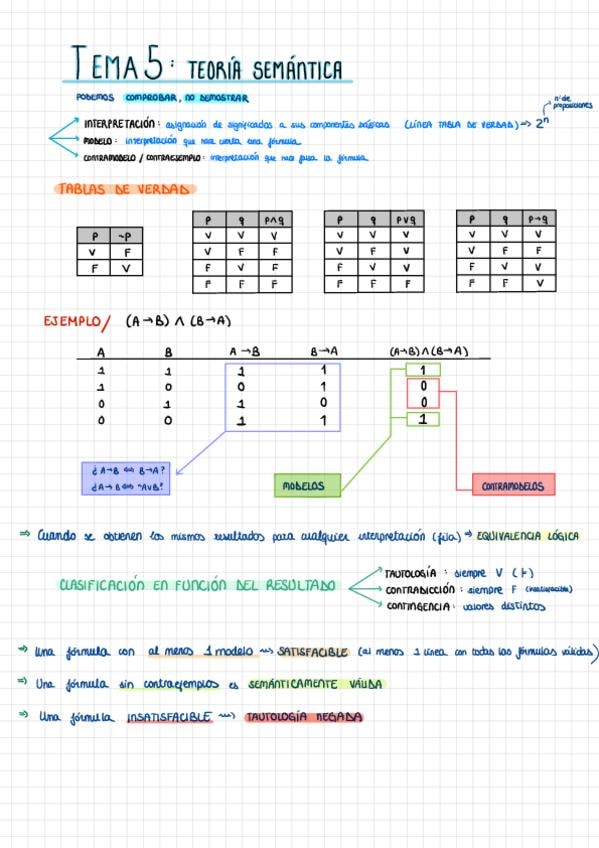 TEMA 5: TEORÍA SEMÁNTICA
PODEMOS COMPROBAR, NO DEMOSTRAR
nº de proposiciones
INTERPRETACIÓN: asignación de significados a sus componentes básicos (LÍNEA TABLA DE VERDAD) => 2^n
MODELO: interpretación que hace cierta una fórmula
CONTRAMODELO / CONTRAEJEMPLO: interpretación que hace falsa la fórmula
TABLAS DE VERDAD
P ¬P
V F
F V
P q P∧q
V V V
V F F
F V F
F F F
P q P∨q
V V V
V F V
F V V
F F F
P q P→q
V V V
V F F
F V V
F F V
EJEMPLO/ (A→B) ∧ (B→A)
A B A→B B→A (A→B)∧(B→A)
1 1 1 1 1
1 0 0 1 0
0 1 1 0 0
0 0 1 1 1
¿A→B ⇔ B→A?
¿A→B ⇔ ¬A∨B?
MODELOS
CONTRAMODELOS
=> Cuando se obtienen los mismos resultados para cualquier interpretación (fila) => EQUIVALENCIA LÓGICA
CLASIFICACIÓN EN FUNCIÓN DEL RESULTADO
TAUTOLOGÍA: siempre V (⊢)
CONTRADICCIÓN: siempre F (insatisfacible)
CONTINGENCIA: valores distintos
=> Una fórmula con al menos 1 modelo ⇝ SATISFACIBLE (al menos 1 línea con todas las fórmulas válidas)
=> Una fórmula sin contraejemplos es SEMÁNTICAMENTE VÁLIDA
=> Una fórmula INSATISFACIBLE ⇝ TAUTOLOGÍA NEGADA